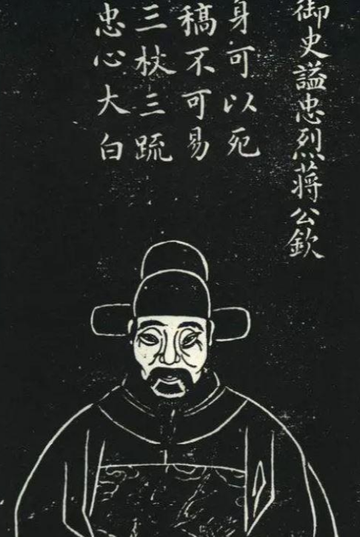 御史諡忠烈蔣公欽
身可以死
稿不可易
三杖三䟽
忠心大白